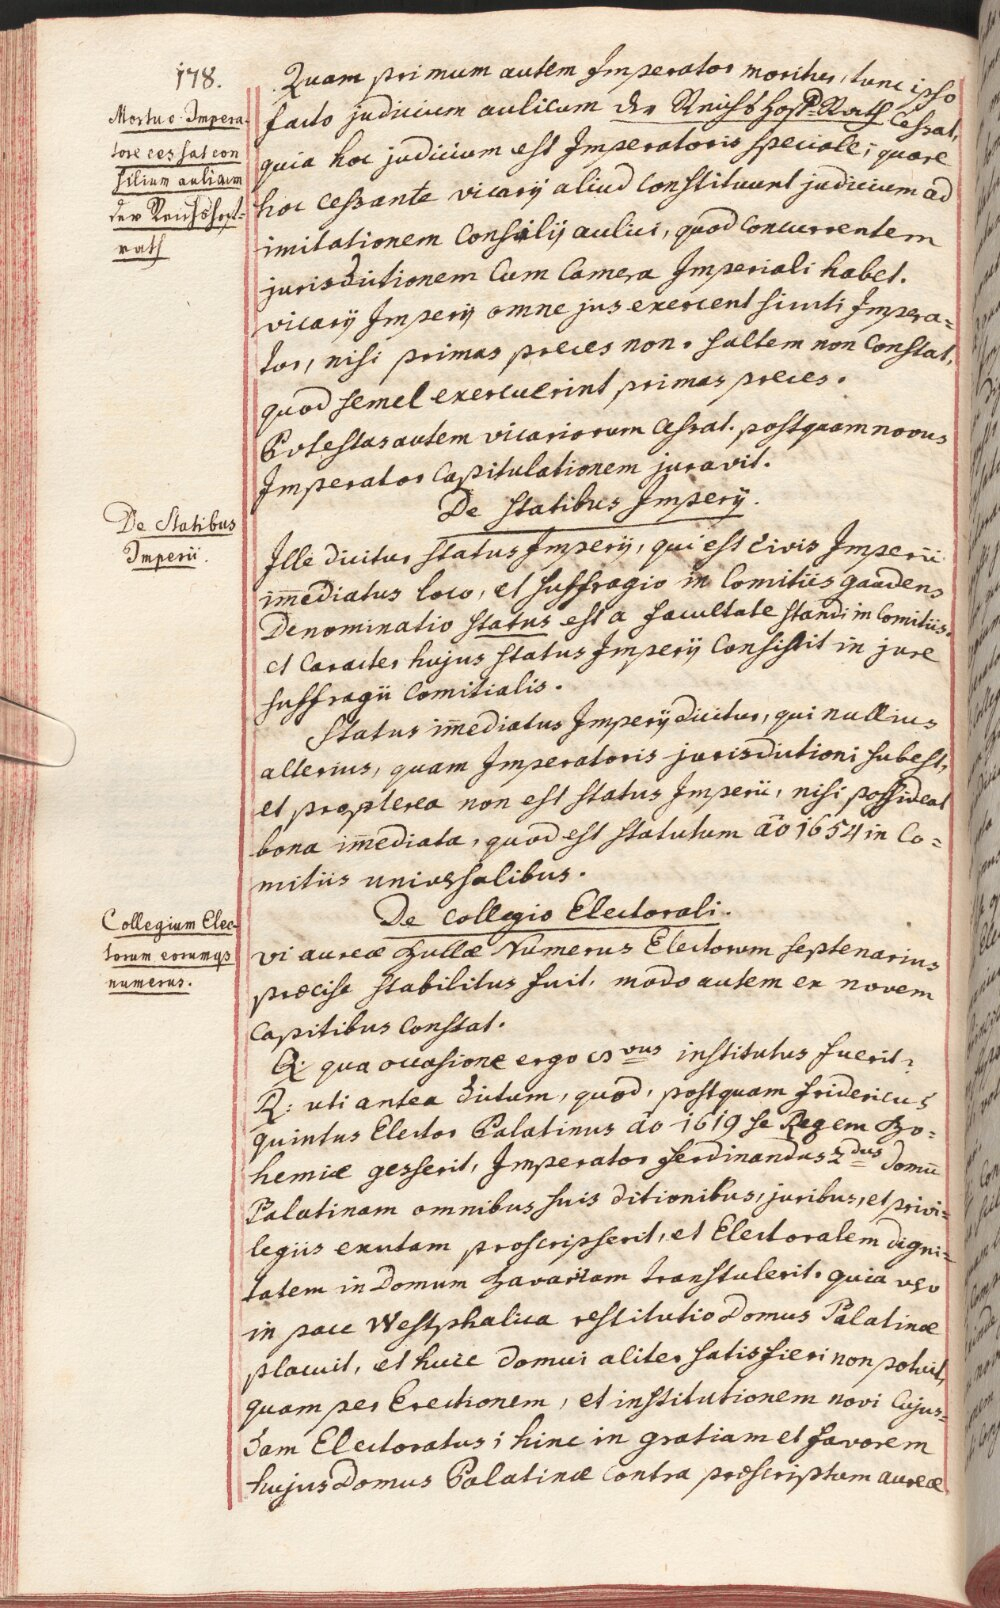 178.
Mortuo Impera-
tore cessat con
silium aulicum
der Reichshoft-
rath
Quam primum autem Imperator moritur, tunc ipso
facto judicium aulicum der Reichshofft-Rath Cessat,
quia hoc judicium est Imperatoris speciale; quare
hoc cessante vicarij aliud constituunt judicium ad
imitationem Consilij aulici, quod concurrentem
jurisdictionem Cum Camera Imperiali habet.
vicarij Imperij omne jus exercent sicuti Impera=
tor, nisi primas preces non. saltem non Constat,
quod semel exercuerint primas preces.
Potestas autem vicariorum cessat. postquam novus
Imperator Capitulationem juravit.
De Statibus
Imperii.
De Statibus Imperij.
Ille dicitur status Imperij, qui est Civis Imperii
im̅ediatus loco, et suffragio in Comitiis gaudens
Denominatio status est a facultate standi in Comitiis.
et Caracter hujus status Imperij Consistit in jure
suffragii Comitialis.
Status im̅ediatus Imperij dicitur, qui nullius
alterius, quam Imperatoris jurisdictioni subest,
et propterea non est status Imperii, nisi possideat
bona im̅ediata, quod est statutum ao 1654 in Co=
mitiis universalibus.
Collegium Elec-
torum eorumqs
numerus.
De Collegio Electorali.
vi aureæ bullæ Numerus Electorum septenarius
præcise stabilitus fuit, modo autem ex novem
Capitibus Constat.
Q: qua occasione ergo 8vus institutus fuerit?
R: uti antea dictum, quod, postquam fridericus
quintus Elector Palatinus ao 1619 se Regem Bo=
hemiæ gesserit, Imperator ferdinandus 2dus domu
Palatinam omnibus suis ditionibus, juribus, et privi=
legiis exutam proscripserit, et Electoralem digni=
tatem in Domum bavariam transtulerit. quia vero
in pace Westphalica restitutio Domus Palatinæ
placuit, et huic domui aliter satisfieri non potuit,
quam per Erectionem, et institutionem novi Cujus=
dam Electoratus; hinc in gratiam et favorem
hujus Domus Palatinæ Contra præscriptum aureæ